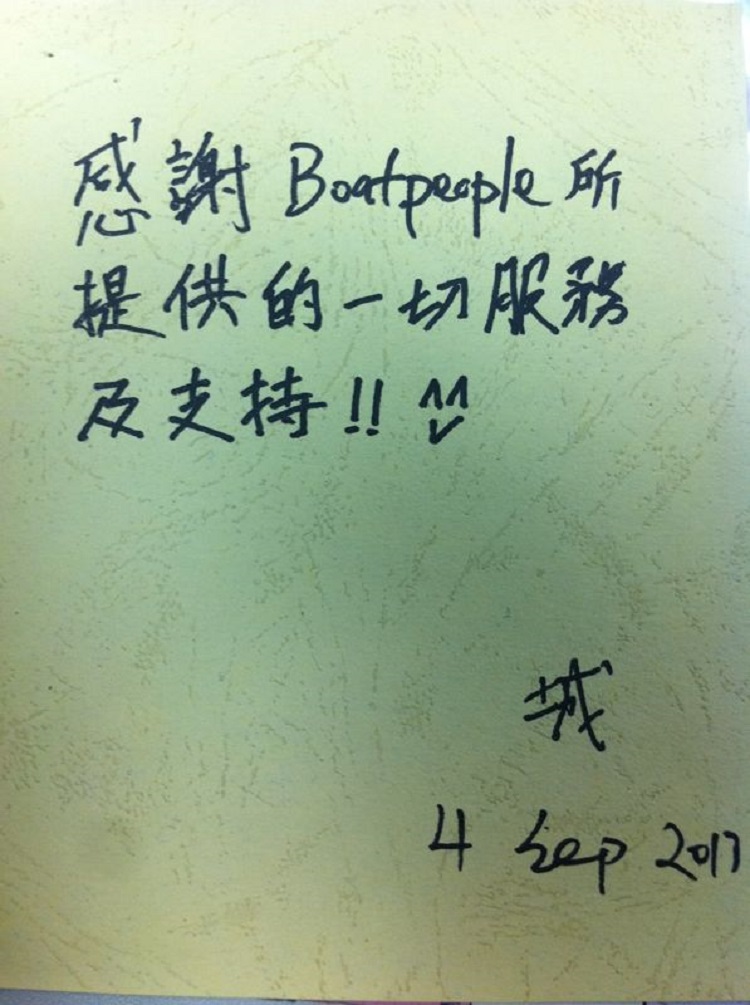 感謝 Boatpeople 所
提供的一切服務
及支持!! ^^
城
4 Sep 2017